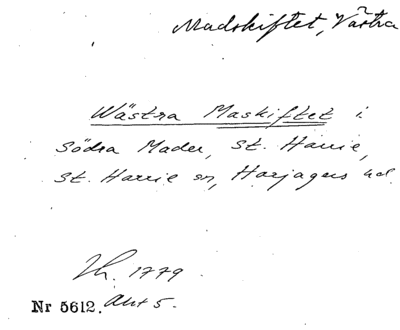 Madskiftet, Västra
Wästra Maskiftet i
Södra Mader, St. Harrie,
St. Harrie sn, Harjagers hd.
Lh. 1779.
Nr 5612. Akt 5.